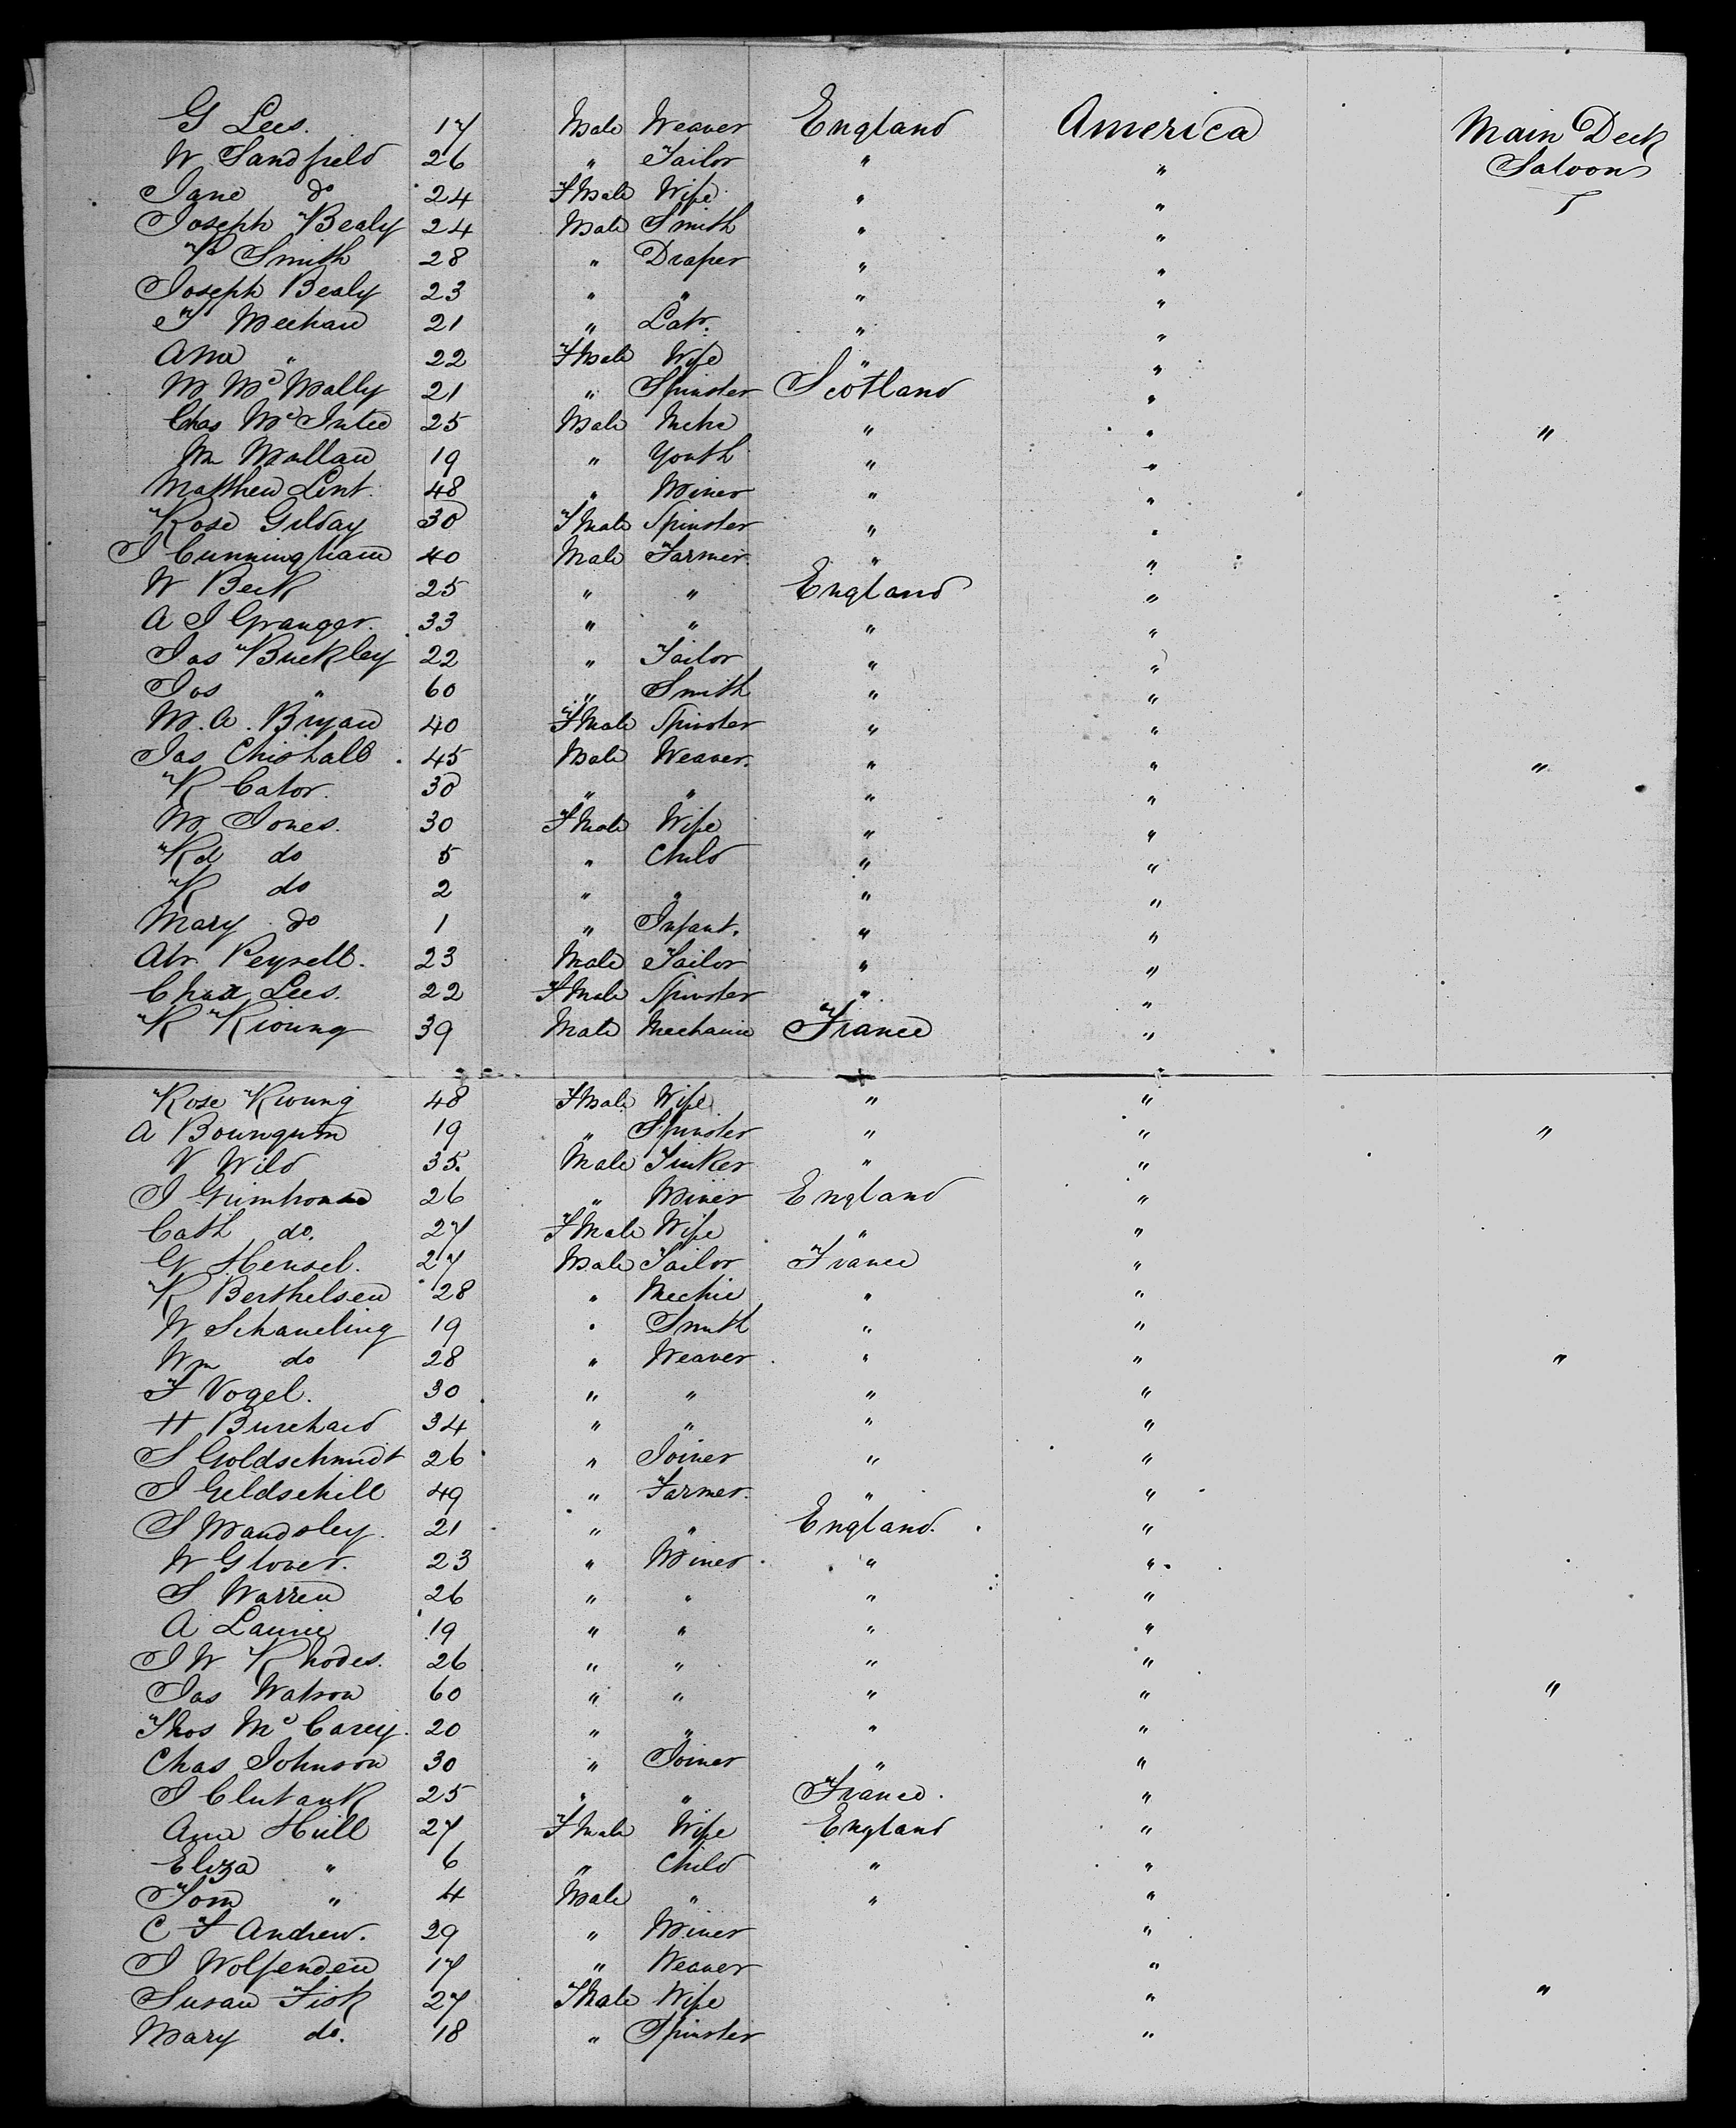 G Lees. 17 Male Weaver England America Main Deck
W Sandfield 26 " Tailor " " Saloon
Jane do 24 F Male Wife " "
Joseph Bealy 24 Male Smith " "
P Smith 28 " Draper " "
Joseph Bealy 23 " " " "
T Meehan 21 " Labr. " "
Ann " 22 F Male Wife " "
M McMally 21 " Spinster Scotland "
Chas McIntee 25 Male Mehc " " "
M Mullan 19 " Youth " "
Matthew Lint 48 " Miner " "
Rose Gilday 30 F Male Spinster " "
J Cunningham 40 Male Farmer. " "
W Beck 25 " " England "
A J Granger. 33 " " " "
Jas Buckley 22 " Tailor " "
Jos " 60 " Smith " "
M.A. Bryan 40 F Male Spinster " "
Jas Chishall 45 Male Weaver. " " "
R Cator. 30 " " " "
M Jones. 30 F Male Wife " "
Rd do 5 " Child " "
R do 2 " " " "
Mary do 1 " Infant. " "
Abr Peysell. 23 Male Tailor " "
Lees. 22 F Male Spinster " "
R Kioung 39 Male Mechanic France "
Rose Kioung 48 F Male Wife " "
A 19 " Spinster " " "
V Wild 35. Male Tinker " "
J 26 " Miner England "
Cath do. 27 F Male Wife " "
G Hensel. 27 Male Tailor France "
R Berthelsen 28 " Mechic " "
W Schaneling 19 " Smith " "
Wm do 28 " Weaver " " "
F Vogel. 30 " " " "
H Burchard 34 " " " "
S Goldschmidt 26 " Joiner " "
J Geldschill 49 " Farmer. " "
S Mandsley. 21 " " England. "
W Glover. 23 " Miner " "
S Warren 26 " " " "
A Laurie 19 " " " "
J W Rhodes. 26 " " " "
Jas Watson 60 " " " " "
Thos McCarey. 20 " " " "
Chas Johnson 30 " Joiner " "
J Clutank 25 " " France. "
Ann Hill 27 F Male Wife England "
Eliza " 6 " Child " "
Tom " 4 Male " " "
C F Andrew. 29 " Miner "
J Wolfenden 17 " Weaver "
Susan Fisk 27 F Male Wife " "
Mary do. 18 " Spinster "